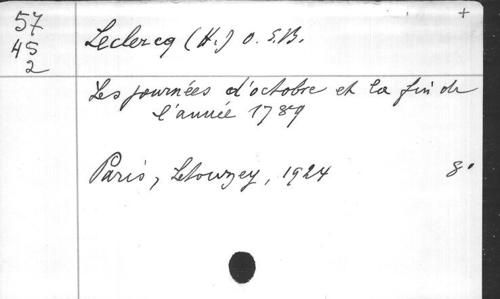 57
45
2
+
Leclercq (H.) O.S.B.
Les journées d'octobre et la fin de
l'année 1789
Paris, Letouzey, 1924 8°